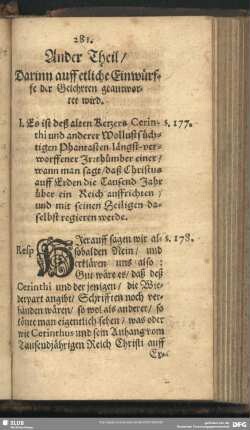 281.
Ander Theil /
Darinn auff etliche Einwürf-
fe der Gelehrten geantwor-
tet wird.
I. Es ist deß alten Ketzers Cerin- s. 177.
thi und anderer Wollustsüch-
tigen Phantasten längst-ver-
worffener Jrrthümber einer /
wann man sagt / daß Christus
auff Erden die Tausend Jahr
über ein Reich auffrichten /
und mit seinen Heiligen da-
selbst regieren werde.
Resp. HJerauff sagen wir al- s. 178.
sobalden Nein / und
erklären uns also:
Gut wäre es / daß deß
Cerinthi und der jenigen / die Wie-
derpart angibt / Schrifften noch ver-
handen wären / so wol als anderer / so
könnt man eigentlich sehen / was oder
wie Cerinthus und sein Anhang vom
Tausendjährigen Reich Christi auff
Er-
SLUB
DFG